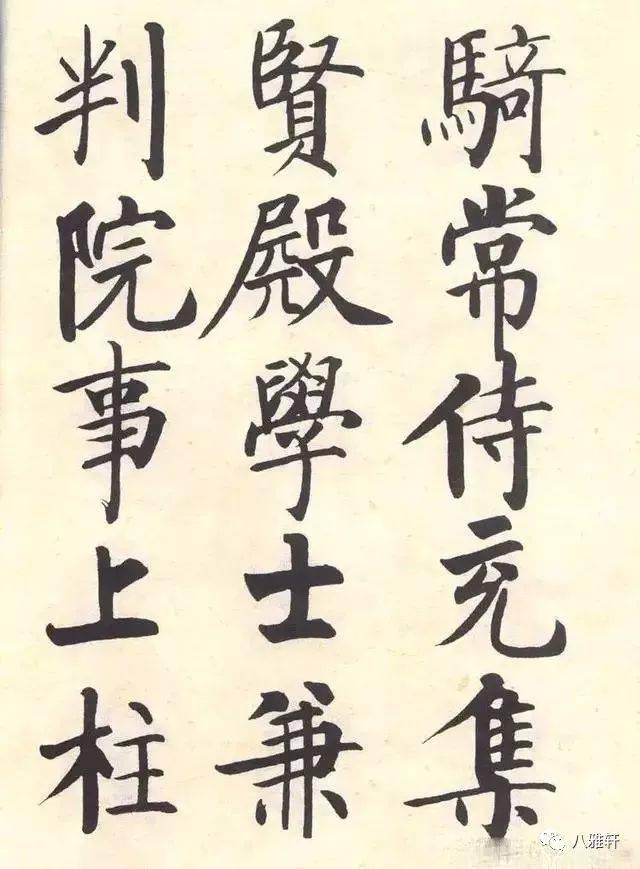 騎常侍充集
賢殿學士兼
判院事上柱
八雅轩